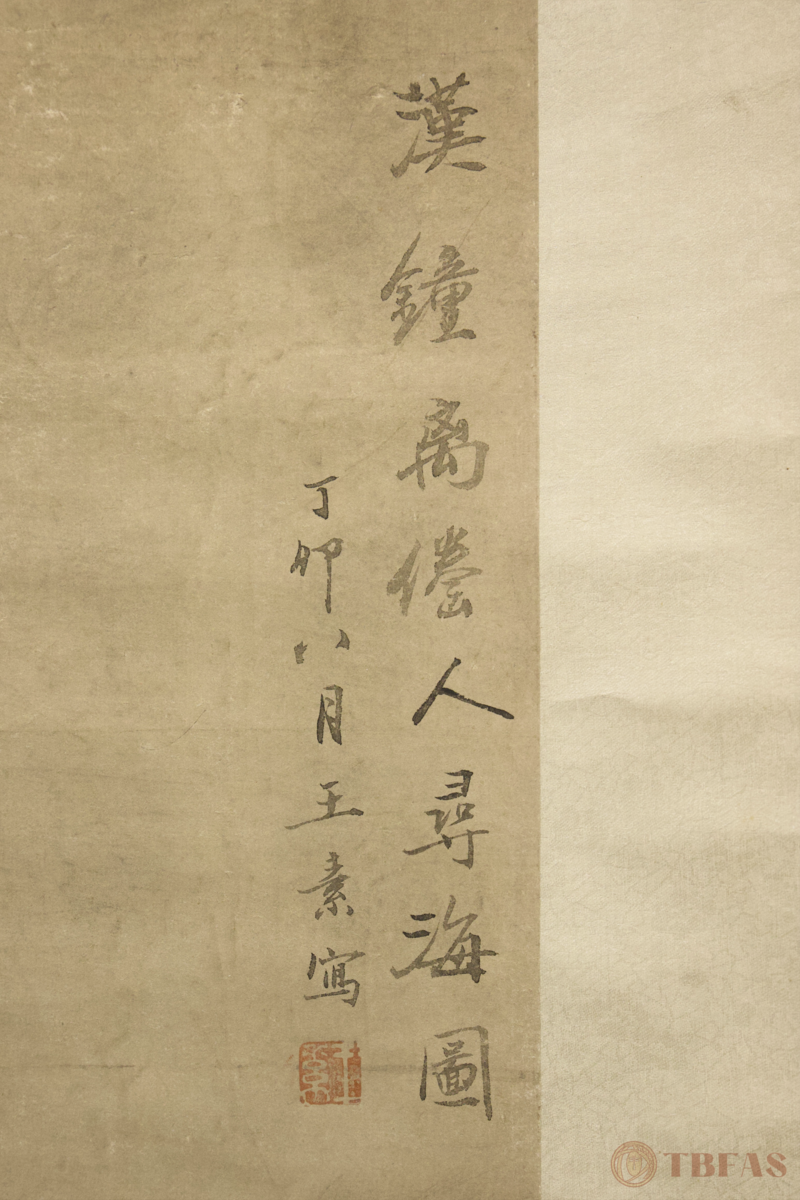 漢鐘离僊人尋海圖
丁卯八月王素寫
TBFAS